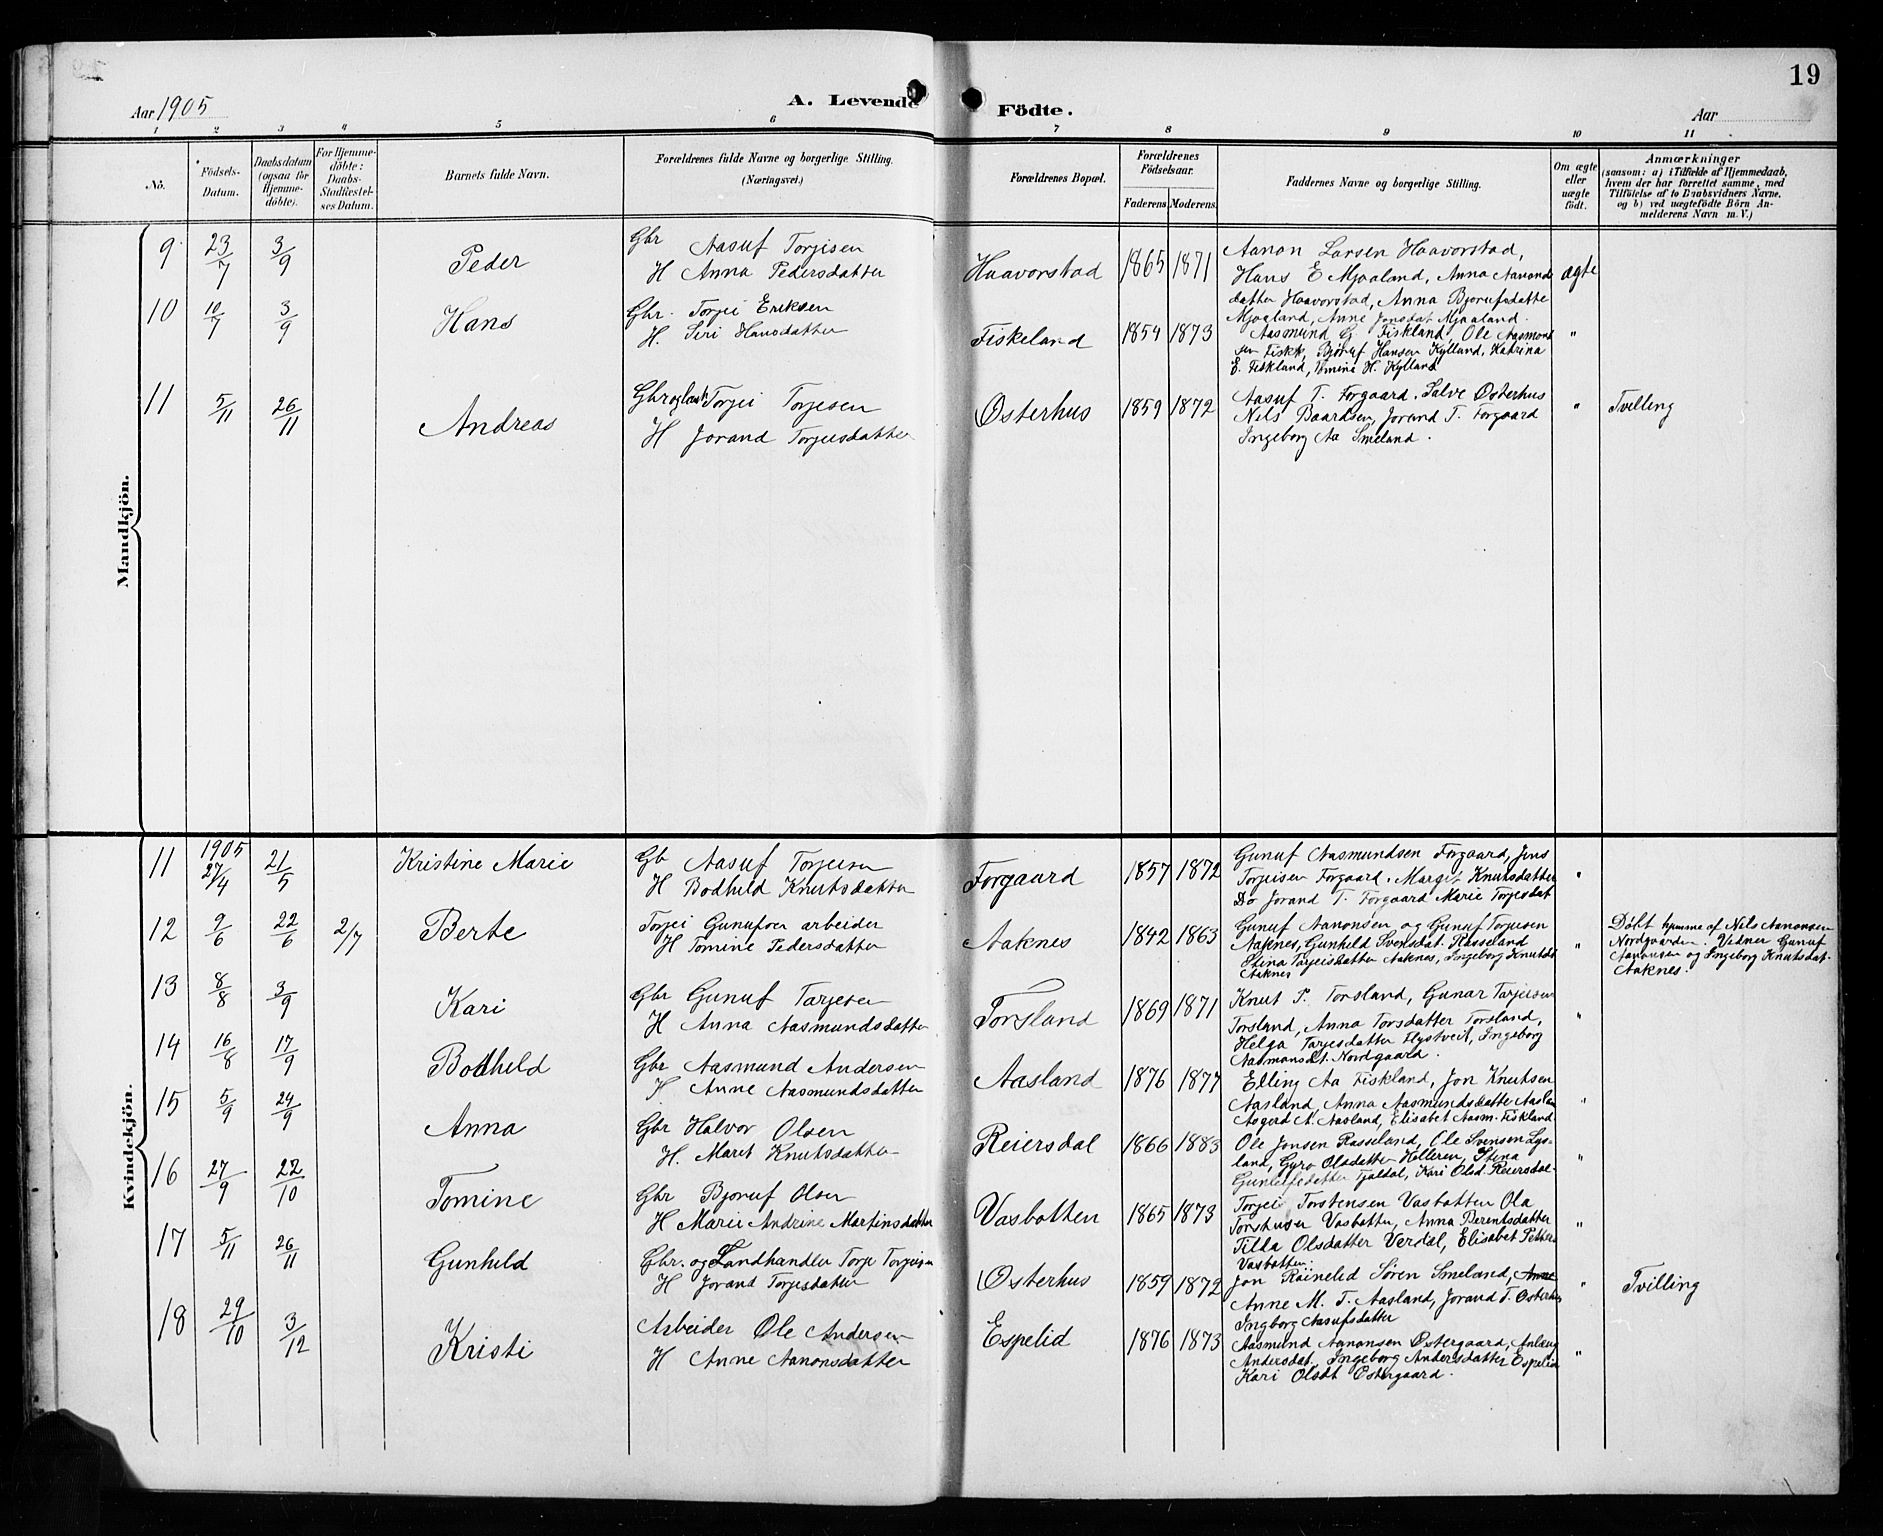 19
Aar 1905
A. Levende Födte.
Aar
1 2 3 4 5 6 7 8 9 10 11
No.
Födsels-Datum.
Daabsdatum (ogsaa for Hjemme-döbte).
For Hjemme-döbte: Daabs-Stadfæstel-ses Datum.
Barnets fulde Navn.
Forældrenes fulde Navne og borgerlige Stilling.
(Næringsvei.)
Forældrenes Bopæl.
Forældrenes Födselsaar.
Faderens. Moderens.
Faddernes Navne og borgerlige Stilling.
Om ægte eller uægte födt.
Anmærkninger
(saasom: a) i Tilfælde af Hjemmedaab,
hvem der har forrettet samme, med
Tilföielse af to Daabsvidners Navne.
og b) ved uægtefödte Börn An-
melderens Navn m. V.)
Mandkjön.
9 23/7 3/9 Peder
Gbr Aasuf Torjisen
H Anna Pedersdatter
Haavorstad 1865 1871
Aanon Larsen Haavorstad,
Hans E Mjaaland, Anna Aanons
datter Haavorstad, Anna Bjorufsdatte
Mjaaland, Anne Jonsdat Mjaaland.
ægte
10 10/7 3/9 Hans
Gbr. Torjei Eriksen
H. Siri Hansdatter
Fiskeland 1854 1873
Aasmund G Fiskland, Ole Aasmond
sen Fiskl, Bjoruf Hansen Kylland, Katrina
E. Fiskland, Tomina H. Kylland
"
11 5/11 26/11 Andreas
Gbr og Landh Torjei Torjesen
H Jorand Torjusdatter
Osterhus 1859 1872
Aasuf T. Forgaard, Salve Osterhus
Nils Baardsen, Jorand T. Forgaard
Ingeborg Aa Smeland.
" Tvilling
Kvindekjön.
11 1905 27/4 21/5 Kristine Marie
Gb Aasuf Torjeisen
H Bodhild Knutsdatter
Forgaard 1857 1872
Gunuf Aasmundsen Forgaard, Jens
Torjeisen Forgaard. Margit Knutsdatter
Do Jorand T. Forgaard Marie Torjesdat
"
12 9/6 22/6 2/7 Berte
Torjei Gunufsen arbeider
H Tomine Pedersdatter
Aaknes 1842 1863
Gunuf Aanonsen og Gunuf Torjusen
Aaknes, Gunhild Svensdat. Rasseland
Stina Tarjeisdatter Aaknes, Ingeborg Knutsdt
Aaknes
"
Döbt hjemme af Nils Aanonsen
Nordgaarden. Vidner Gunuf
Aanonsen og Ingeborg Knutsdat.
Aaknes.
13 8/8 3/9 Kari
Gbr Gunuf Tarjesen
H Anna Aasmundsdatter
Torsland 1869 1871
Knut P. Torsland, Gunar Tarjeisen
Torsland, Anna Torsdatter Torsland,
Helga Tarjesdatter Hystveit, Ingeborg
Aasmonsdt. Nordgaard.
"
14 16/8 17/9 Bodhild
Gbr Aasmund Andersen
H Anne Aasmundsdatter
Aasland 1876 1877
Elling Aa Fiskland, Jon Knutsen
Aasland, Anna Aasmundsdatter Aaslan
Asgerd A. Aasland, Elisabet Aasm. Fiskland
"
15 5/9 24/9 Anna
Gbr Halvor Olsen
H. Marit Knutsdatter
Reiersdal 1866 1883
Ole Jonsen Rasseland, Ole Svensen Lys-
land, Gyro Olsdatter Holleren, Stina
Gunleifsdatter Tjaldal, Kari Olsd. Reiersdal
"
16 27/9 22/10 Tomine
Gbr Bjoruf Olsen
H Marie Andrine Martinsdatter
Vasbotten 1865 1873
Torjei Torstensen Vasbotten Ola
Torstensen Vasbotten, Anna Berentsdatter
Tilda Olsdatter Verdal, Elisabet Petters
Vasbotten.
"
17 5/11 26/11 Gunhild
Gbr. og Landhandler Torje Torjeisen
H Jorand Torjesdatter
Osterhus 1859 1872
Jon Rainelid Sören Smeland, Anne
Anne M. T. Aasland, Jorand T. Osterhus
Ingborg Aasufsdatter
" Tvilling
18 29/10 3/12 Kristi
Arbeider Ole Andersen
H Anne Aanonsdatter
Espelid 1876 1873
Aasmund Aanonsen Østergaard, Aslaug
Andersdat, Ingeborg Andersdatter Espelid
Kari Olsdt Østergaard.
"